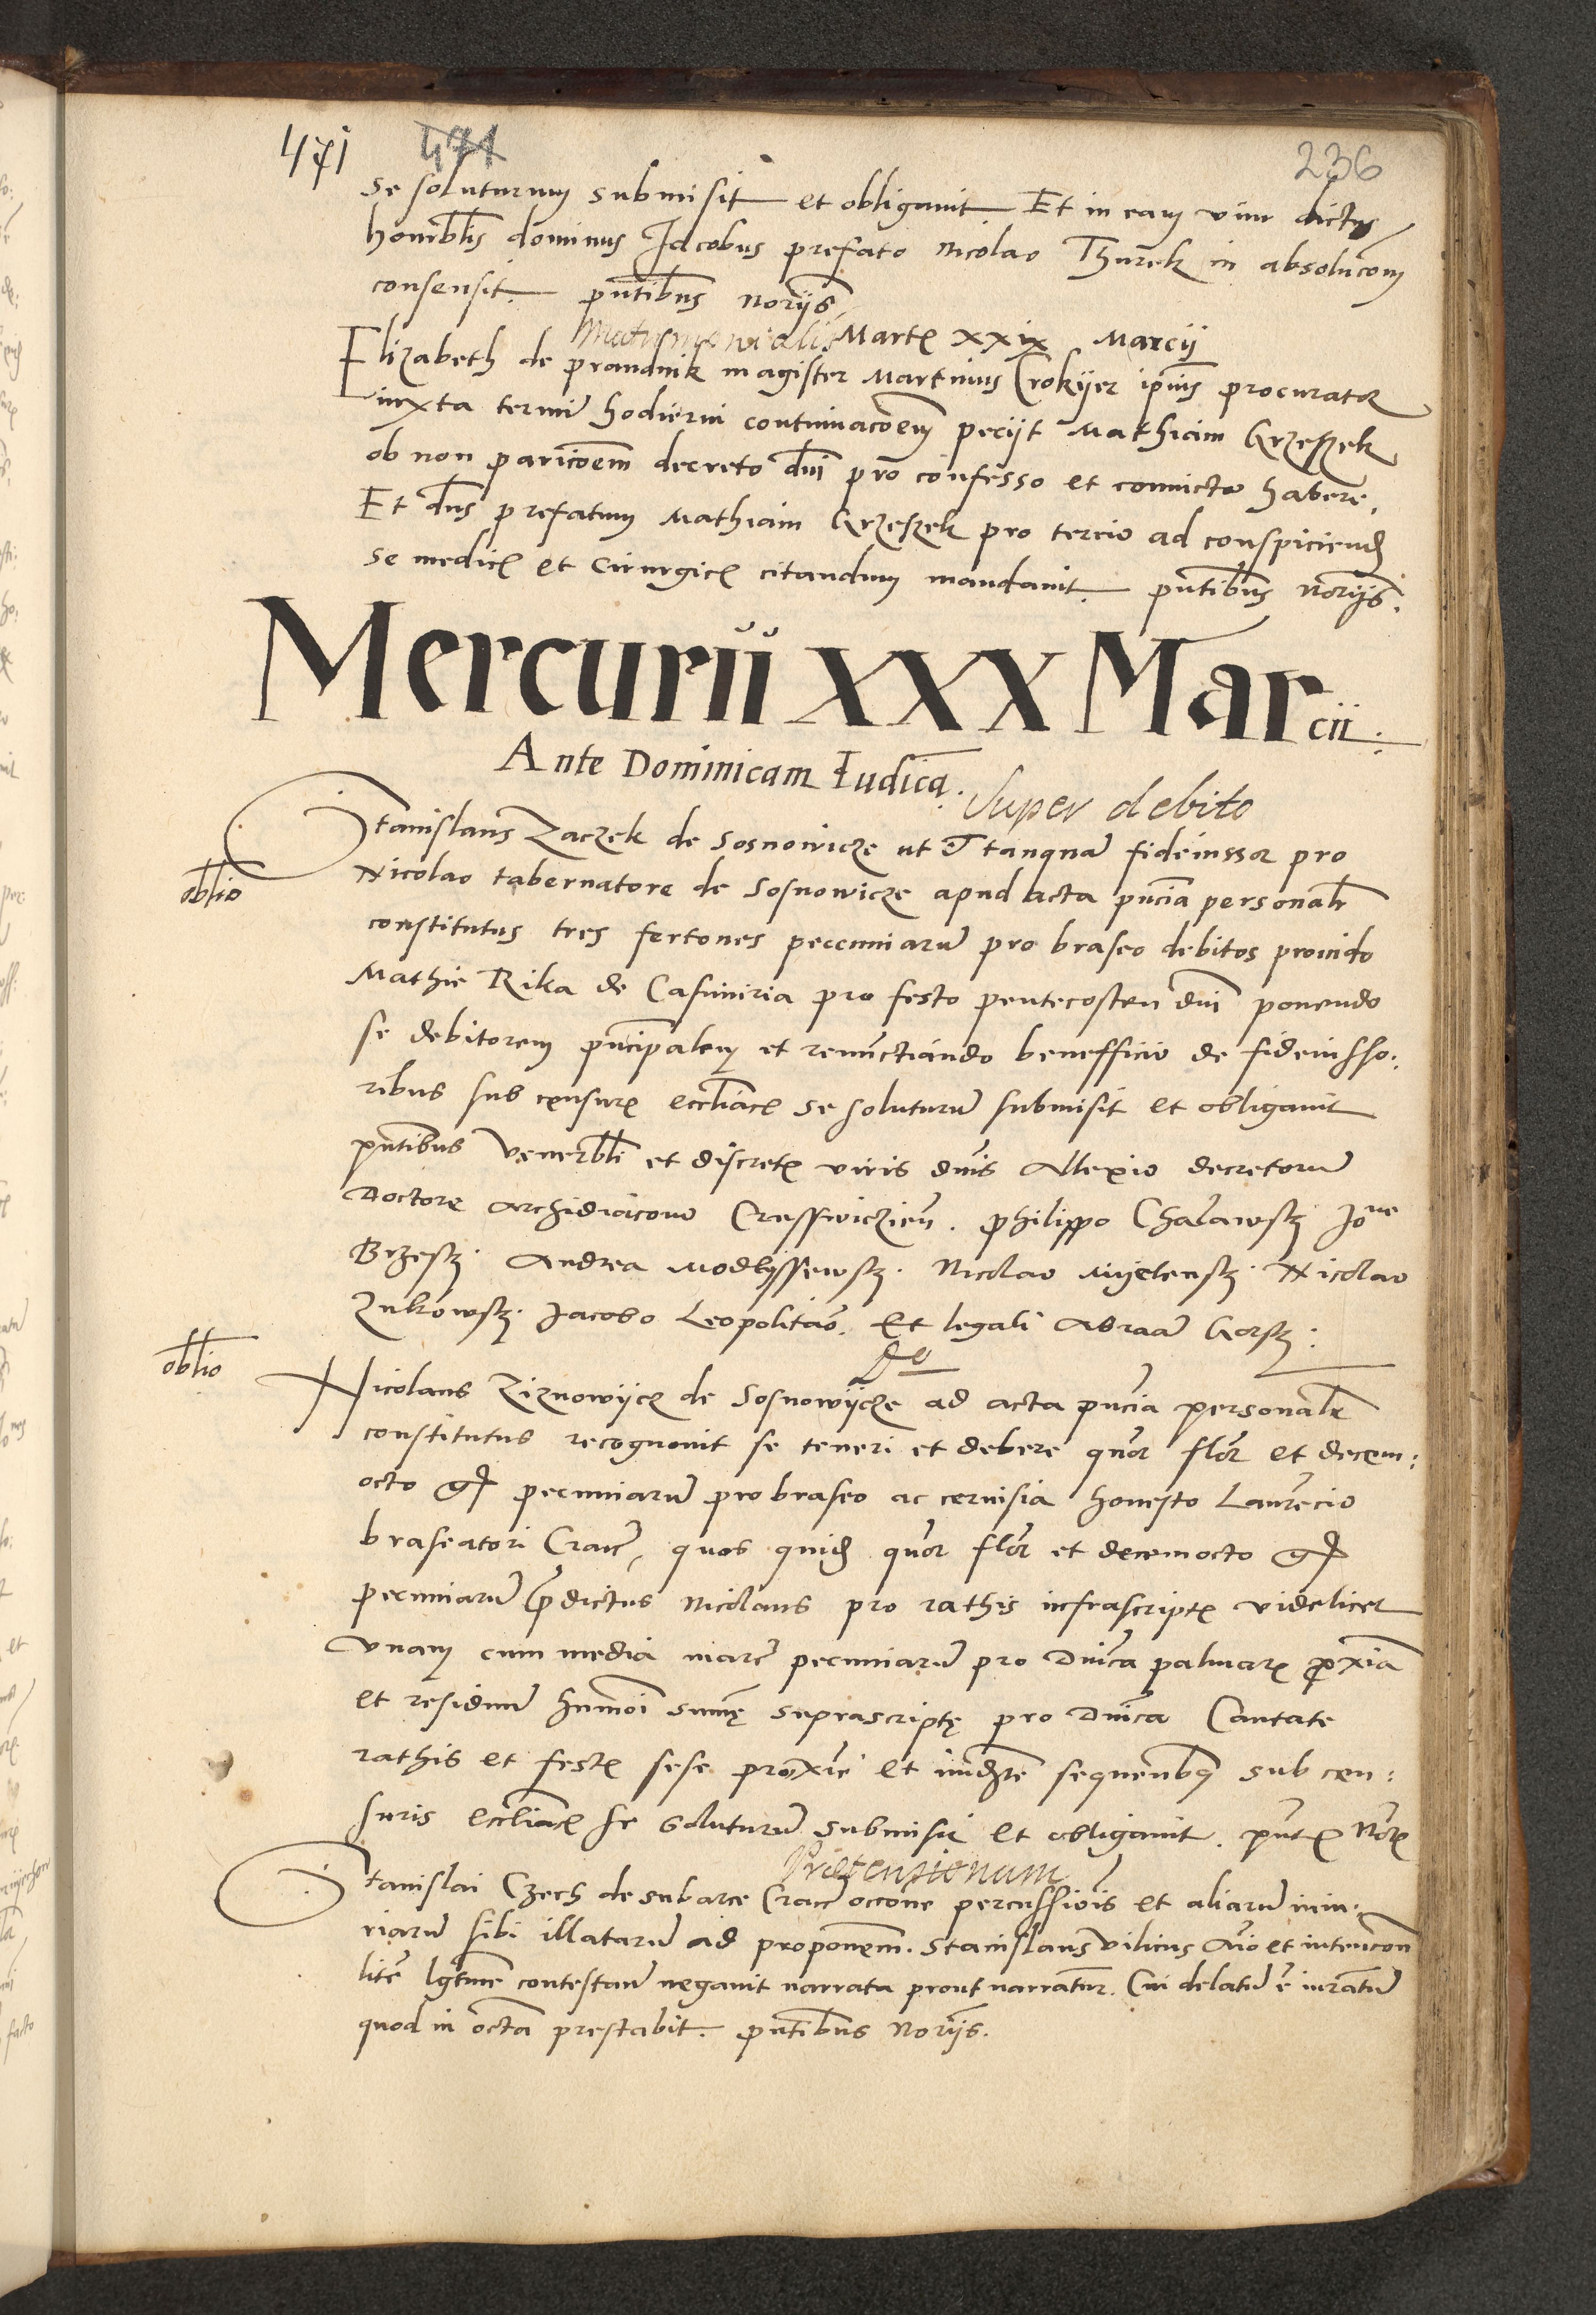 471 471 236
se soluturum submisit et obligauit Et in eam vim dictus
honorblis dominus Jacobus prefato Nicolao Thurek in absolucom
consensit. pntibus noriis
Matrimonialis Martz xxix Marcii
Elizabeth de prandnik magister Martinus Crokyer ipius procurator
iuxta termi hodierni continuacoem peciit Mathiam Grzeszek
ob non paricoem decreto dni pro confesso et conuicto habere,
Et dns prefatum Mathiam Grzeszek pro tercio ad conspiciend
se medicz et Cirurgicz citandum mandauit. pntibus noriis.
Mercurii XXX Marcii.
Ante Dominicam Iudica. Super debito
Stanislaus Zaczek de Sosnowicze ut tanquam fideiussor pro
oblio
Nicolao tabernatore de Sosnowicze apud acta pncia personalr
constitutus tres fertones peccuniarum pro braseo debitos prouido
Mathie Rika de Casimiria pro festo pentecosten dni ponendo
se debitorem pncipalem et renunctiando benefficio de fideiusso:
ribus sub censurz eccliacz se soluturum submisit et obligauit
pntibus venerbli et discretz viris dnis Allexio decretorum
Doctore Archidiacono Crasswiczien. philippo Chalawsz Jone
Brzesz. Andrea Modlyssewsz. Nicolao Myelensz. Nicolao
Zukowsz. Jacobo Leopolitao. Et legali Abraam Gorsz:
oblio
Do
Nicolaus Ziznowycz de Sosnowycze ad acta pncia personalr
constitutus recognouit se teneri et debere quor flor et decem:
octo gr pecuniarum pro braseo ac ceruisia honesto Laurencio
braseatori Crac, quos quid quor flor et decemocto gr
pecuniarum pdictus Nicolaus pro rathis infrascriptz videlicet
vnam cum media marc pecuniarum pro Dnica palmarz proxia
et residuum humoi sume suprascripte pro Dnica Cantate
rathis et festz sese proxie et imdte sequenbq sub cen:
suris eccliacz se soluturum submisit et obligauit. pntz Norz
Prætensionum
Stanislai Czech de subarce Crac occone percussiois et aliarum iniu:
riarum sibi illatarum ad proponem. Stanislaus vilicus Aio et intencom
litem lgtme contestan negauit narrata prout narrantur. Cui delatum e iuramtum
quod in octa prestabit. pntibus Noriis.